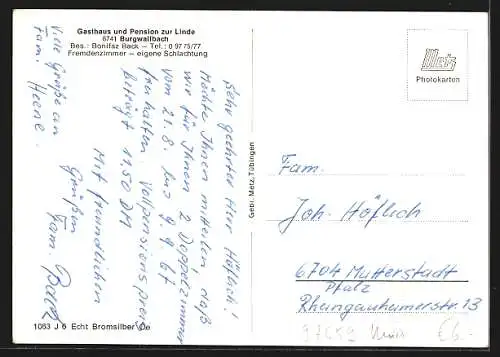 Gasthaus und Pension zur Linde
8741 Burgwallbach
Bes.: Bonifaz Back – Tel.: 0 97 75/77
Fremdenzimmer – eigene Schlachtung
Metz
Photokarten
Sehr geehrter Herr Höflich!
Möchte Ihnen mitteilen, daß
wir für Ihnen 2 Doppelzimmer
vom 21.8. bis 9.9.67
freihalten. Vollpensionspreis
beträgt 11,50 DM
Mit freundlichen
Grüßen
Fam. Back
Viele Grüße an
Fam. Heene.
Gebr. Metz, Tübingen
Fam.
Joh. Höflich
6704 Mutterstadt
Pfalz
Rheingönheimerstr. 13
1063 J 6 Echt Bromsilber